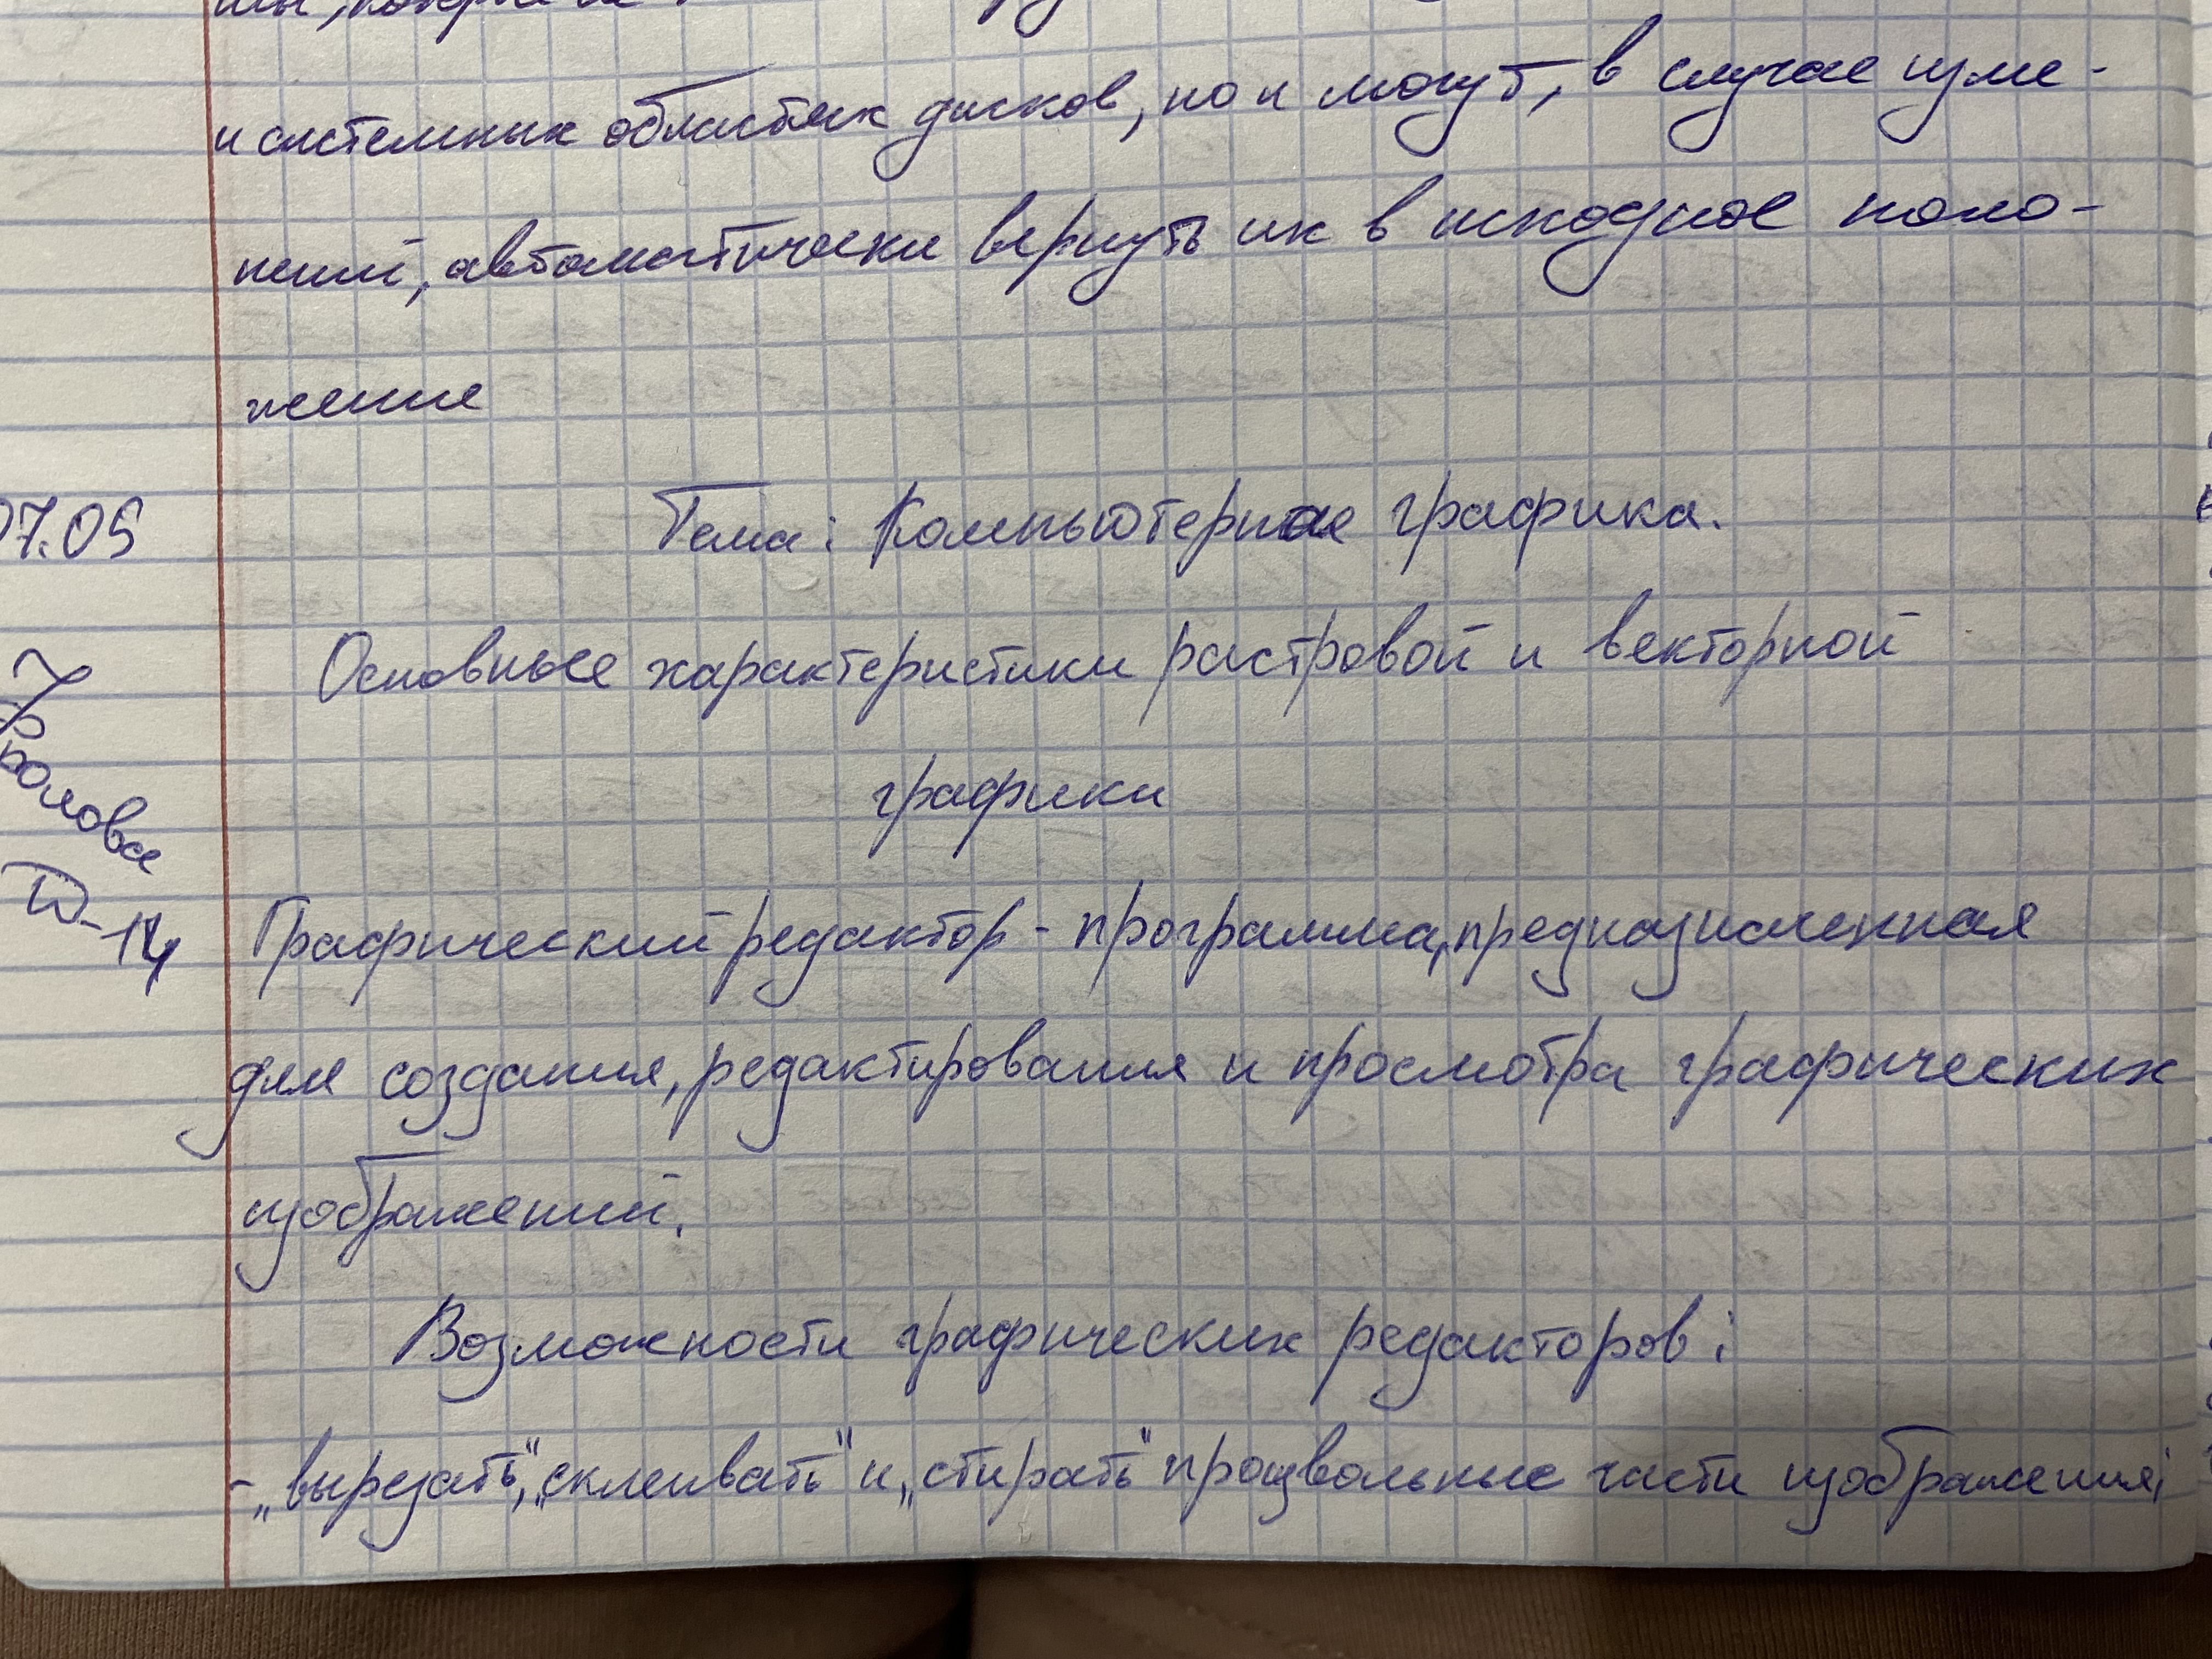 и системных областях дисков, но и могут, в случае изме-
нений, автоматически вернуть их в исходное поло-
жение
07.05
Тема: Компьютерная графика.
Основные характеристики растровой и векторной
графики
Фролова
D-14
Графический редактор - программа, предназначенная
для создания, редактирования и просмотра графических
изображений.
Возможности графических редакторов:
- „вырезать", „склеивать" и „стирать" произвольные части изображения;